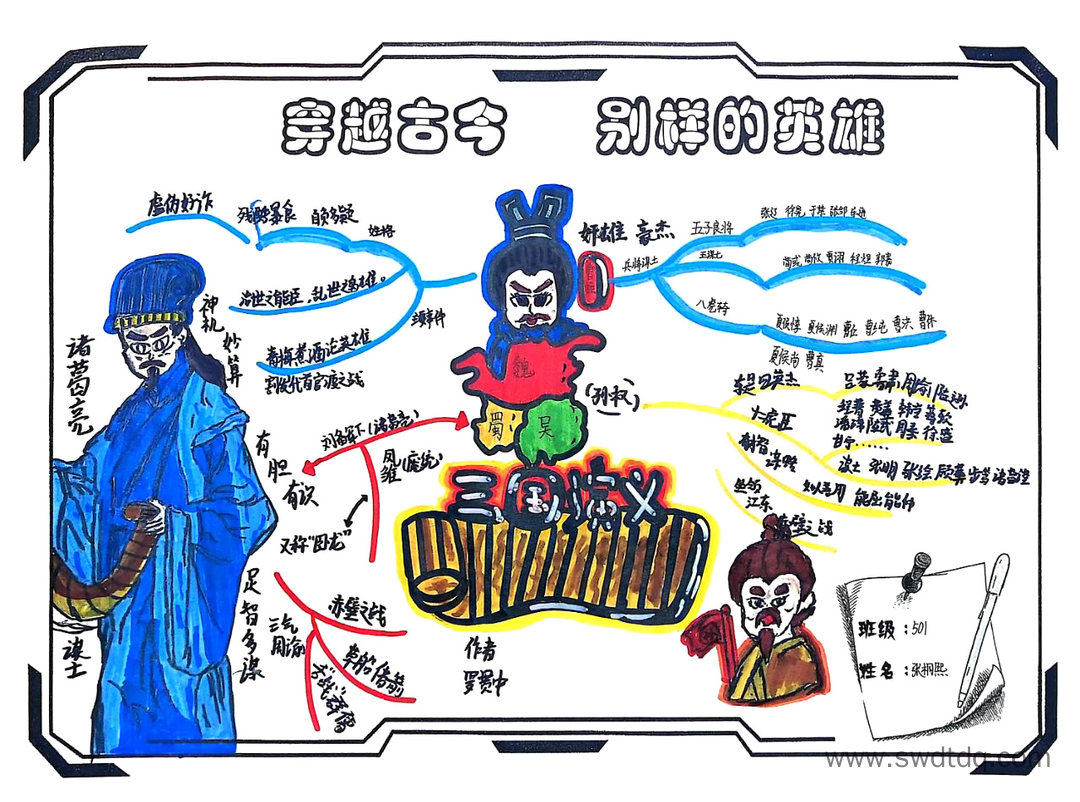 穿越古今 别样的英雄
虚伪奸诈
残酷暴食 自负多疑
性格
治世之能臣，乱世之鸡雄。
主要事件
青梅煮酒论英雄
割发代首官渡之战
奸雄 豪杰
兵将谋士
五子良将
张辽 徐晃 于禁 张郃 乐进
五谋士
荀彧 荀攸 贾诩 程昱 郭嘉
八虎骑
夏侯惇 夏侯渊 曹仁 曹纯 曹洪 曹休
夏侯尚 曹真
魏
蜀
吴
三国演义
作者
罗贯中
诸葛亮
神机
妙算
有
胆
有识
谋士
足智多谋
刘备军下(诸葛亮)
凤雏(庞统)
又称“卧龙”
赤壁之战
三气周瑜
草船借箭
舌战群儒
(孙权)
东吴四英杰
吕蒙 鲁肃 周瑜 陆逊
十二虎臣
程普 黄盖 韩当 蒋钦
潘璋 陈武 周泰 徐盛
甘宁……
谋士 张昭 张纮 顾雍 步骘 诸葛瑾
知人善用 能屈能伸
坐领
江东
赤壁之战
班级：501
姓名：张栩熙
www.swdtdq.com